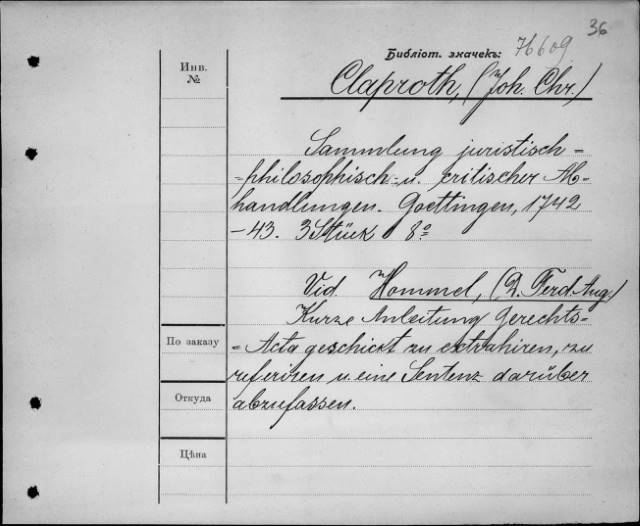 36
Библіот. значекъ: 76609
Инв.
№
Claproth, (Joh. Chr.)
Sammlung juristisch-
-philosophisch- u. critischer Ab-
handlungen. Goettingen, 1742
-43. 3 Stück 8°
Vid. Hommel, (D. Ferd. Aug.)
Kurze Anleitung Gerechts-
По заказу
-Acta geschickt zu extrahiren, zu
referiren u. eine Sentenz darüber
Откуда
abzufassen.
Цѣна